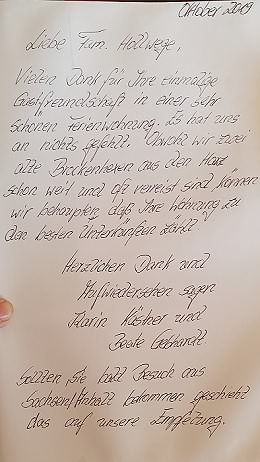 Oktober 2019
Liebe Fam. Hollwege,
Vielen Dank für Ihre einmalige
Gastfreundschaft in einer sehr
schönen Ferienwohnung. Es hat uns
an nichts gefehlt. Obwohl wir zwei
alte Brockenhexen aus dem Harz
schon weit und oft verreist sind, können
wir behaupten, daß Ihre Wohnung zu
den besten Unterkünften zählt.
Herzlichen Dank und
Aufwiedersehen sagen
Karin Küstner und
Beate Gebhardt
Sollten Sie bald Besuch aus
Sachsen/Anhalt bekommen geschieht
das auf unsere Empfehlung.